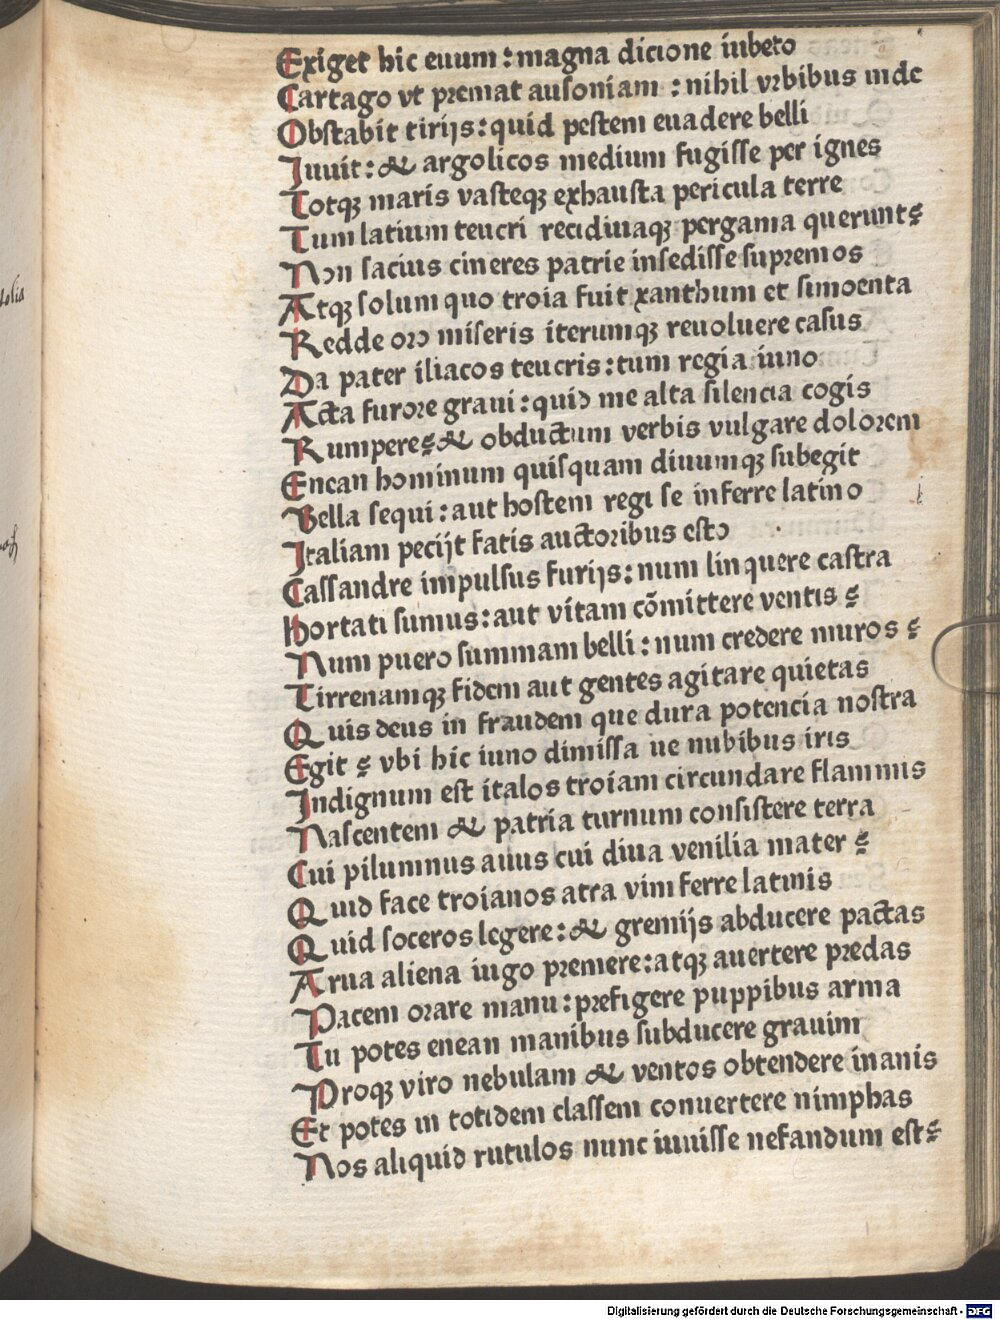 Exiget hic euum : magna dicione iubeto
Cartago vt premat ausoniam : nihil vrbibus inde
Obstabit tirijs : quid pestem euadere belli
Iuuit : & argolicos medium fugisse per ignes
Totqꝫ maris vasteqꝫ exhausta pericula terre
Tum latium teucri recidiuaqꝫ pergama querunt?
Non sacius cineres patrie insedisse supremos
Atqꝫ solum quo troia fuit xanthum et simoenta
Redde oro miseris iterumqꝫ reuoluere casus
Da pater iliacos teucris : tum regia iuno
Acta furore graui : quid me alta silencia cogis
Rumpere? & obductum verbis vulgare dolorem
Enean hominum quisquam diuumqꝫ subegit
Bella sequi : aut hostem regi se inferre latino
Italiam pecijt fatis auctoribus esto
Cassandre impulsus furijs : num linquere castra
Hortati sumus : aut vitam cõmittere ventis ?
Num puero summam belli : num credere muros ?
Tirrenamqꝫ fidem aut gentes agitare quietas
Quis deus in fraudem que dura potencia nostra
Egit ? vbi hic iuno dimissa ue nubibus iris
Indignum est italos troiam circundare flammis
Nascentem & patria turnum consistere terra
Cui pilumnus auus cui diua venilia mater ?
Quid face troianos atra vim ferre latinis
Quid soceros legere : & gremijs abducere pactas
Arua aliena iugo premere : atqꝫ auertere predas
Pacem orare manu : prefigere puppibus arma
Tu potes enean manibus subducere graium
Proqꝫ viro nebulam & ventos obtendere inanis
Et potes in totidem classem conuertere nimphas
Nos aliquid rutulos nunc iuuisse nefandum est?
Digitalisierung gefördert durch die Deutsche Forschungsgemeinschaft - DFG